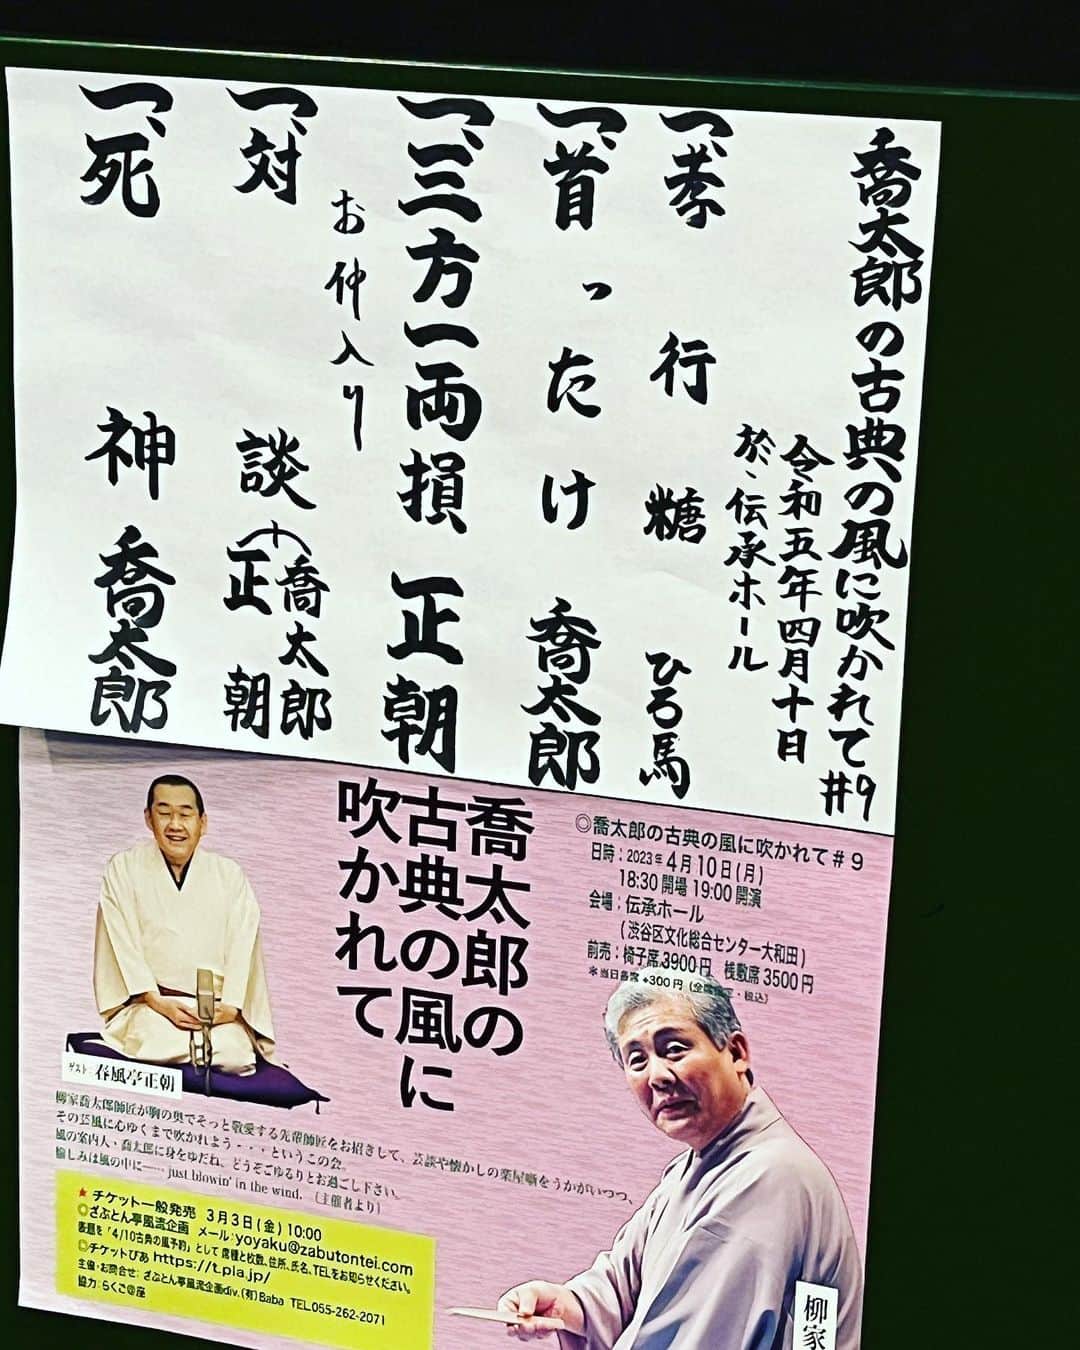 喬太郎の古典の風に吹かれて#9
令和五年四月十日
於、伝承ホール
一、孝行糖 ひろ馬
一、首ったけ 喬太郎
一、三方一両損 正朝
お仲入り
一、対談 喬太郎
正朝
一、死神 喬太郎
喬太郎の
古典の風に
吹かれて
◎喬太郎の古典の風に吹かれて#9
日時:2023年4月10日(月)
18:30開場 19:00開演
会場:伝承ホール
(渋谷区文化総合センター大和田)
前売:椅子席3900円 桟敷席3500円
*当日各席+300円(全席指定・税込)
ゲスト:春風亭正朝
柳家喬太郎師匠が胸の奥でそっと敬愛する先輩師匠をお招きして、芸談や懐かしの楽屋噺をうかがいつつ、
その芸風に心ゆくまで吹かれよう・・・というこの会。
風の案内人・喬太郎に身をゆだね、どうぞごゆるりとお過ごし下さい。
愉しみは風の中に―― just blowin' in the wind. (主催者より)
★チケット一般発売 3月3日(金)10:00
◎ざぶとん亭風流企画 メール:yoyaku@zabutontei.com
表題を「4/10古典の風予約」として 席種と枚数、住所、氏名、TELをお知らせください。
◎チケットぴあ https://t.pia.jp/
主催・お問合せ:ざぶとん亭風流企画div.(有)Baba TEL.055-262-2071
協力:らくご@座
柳家